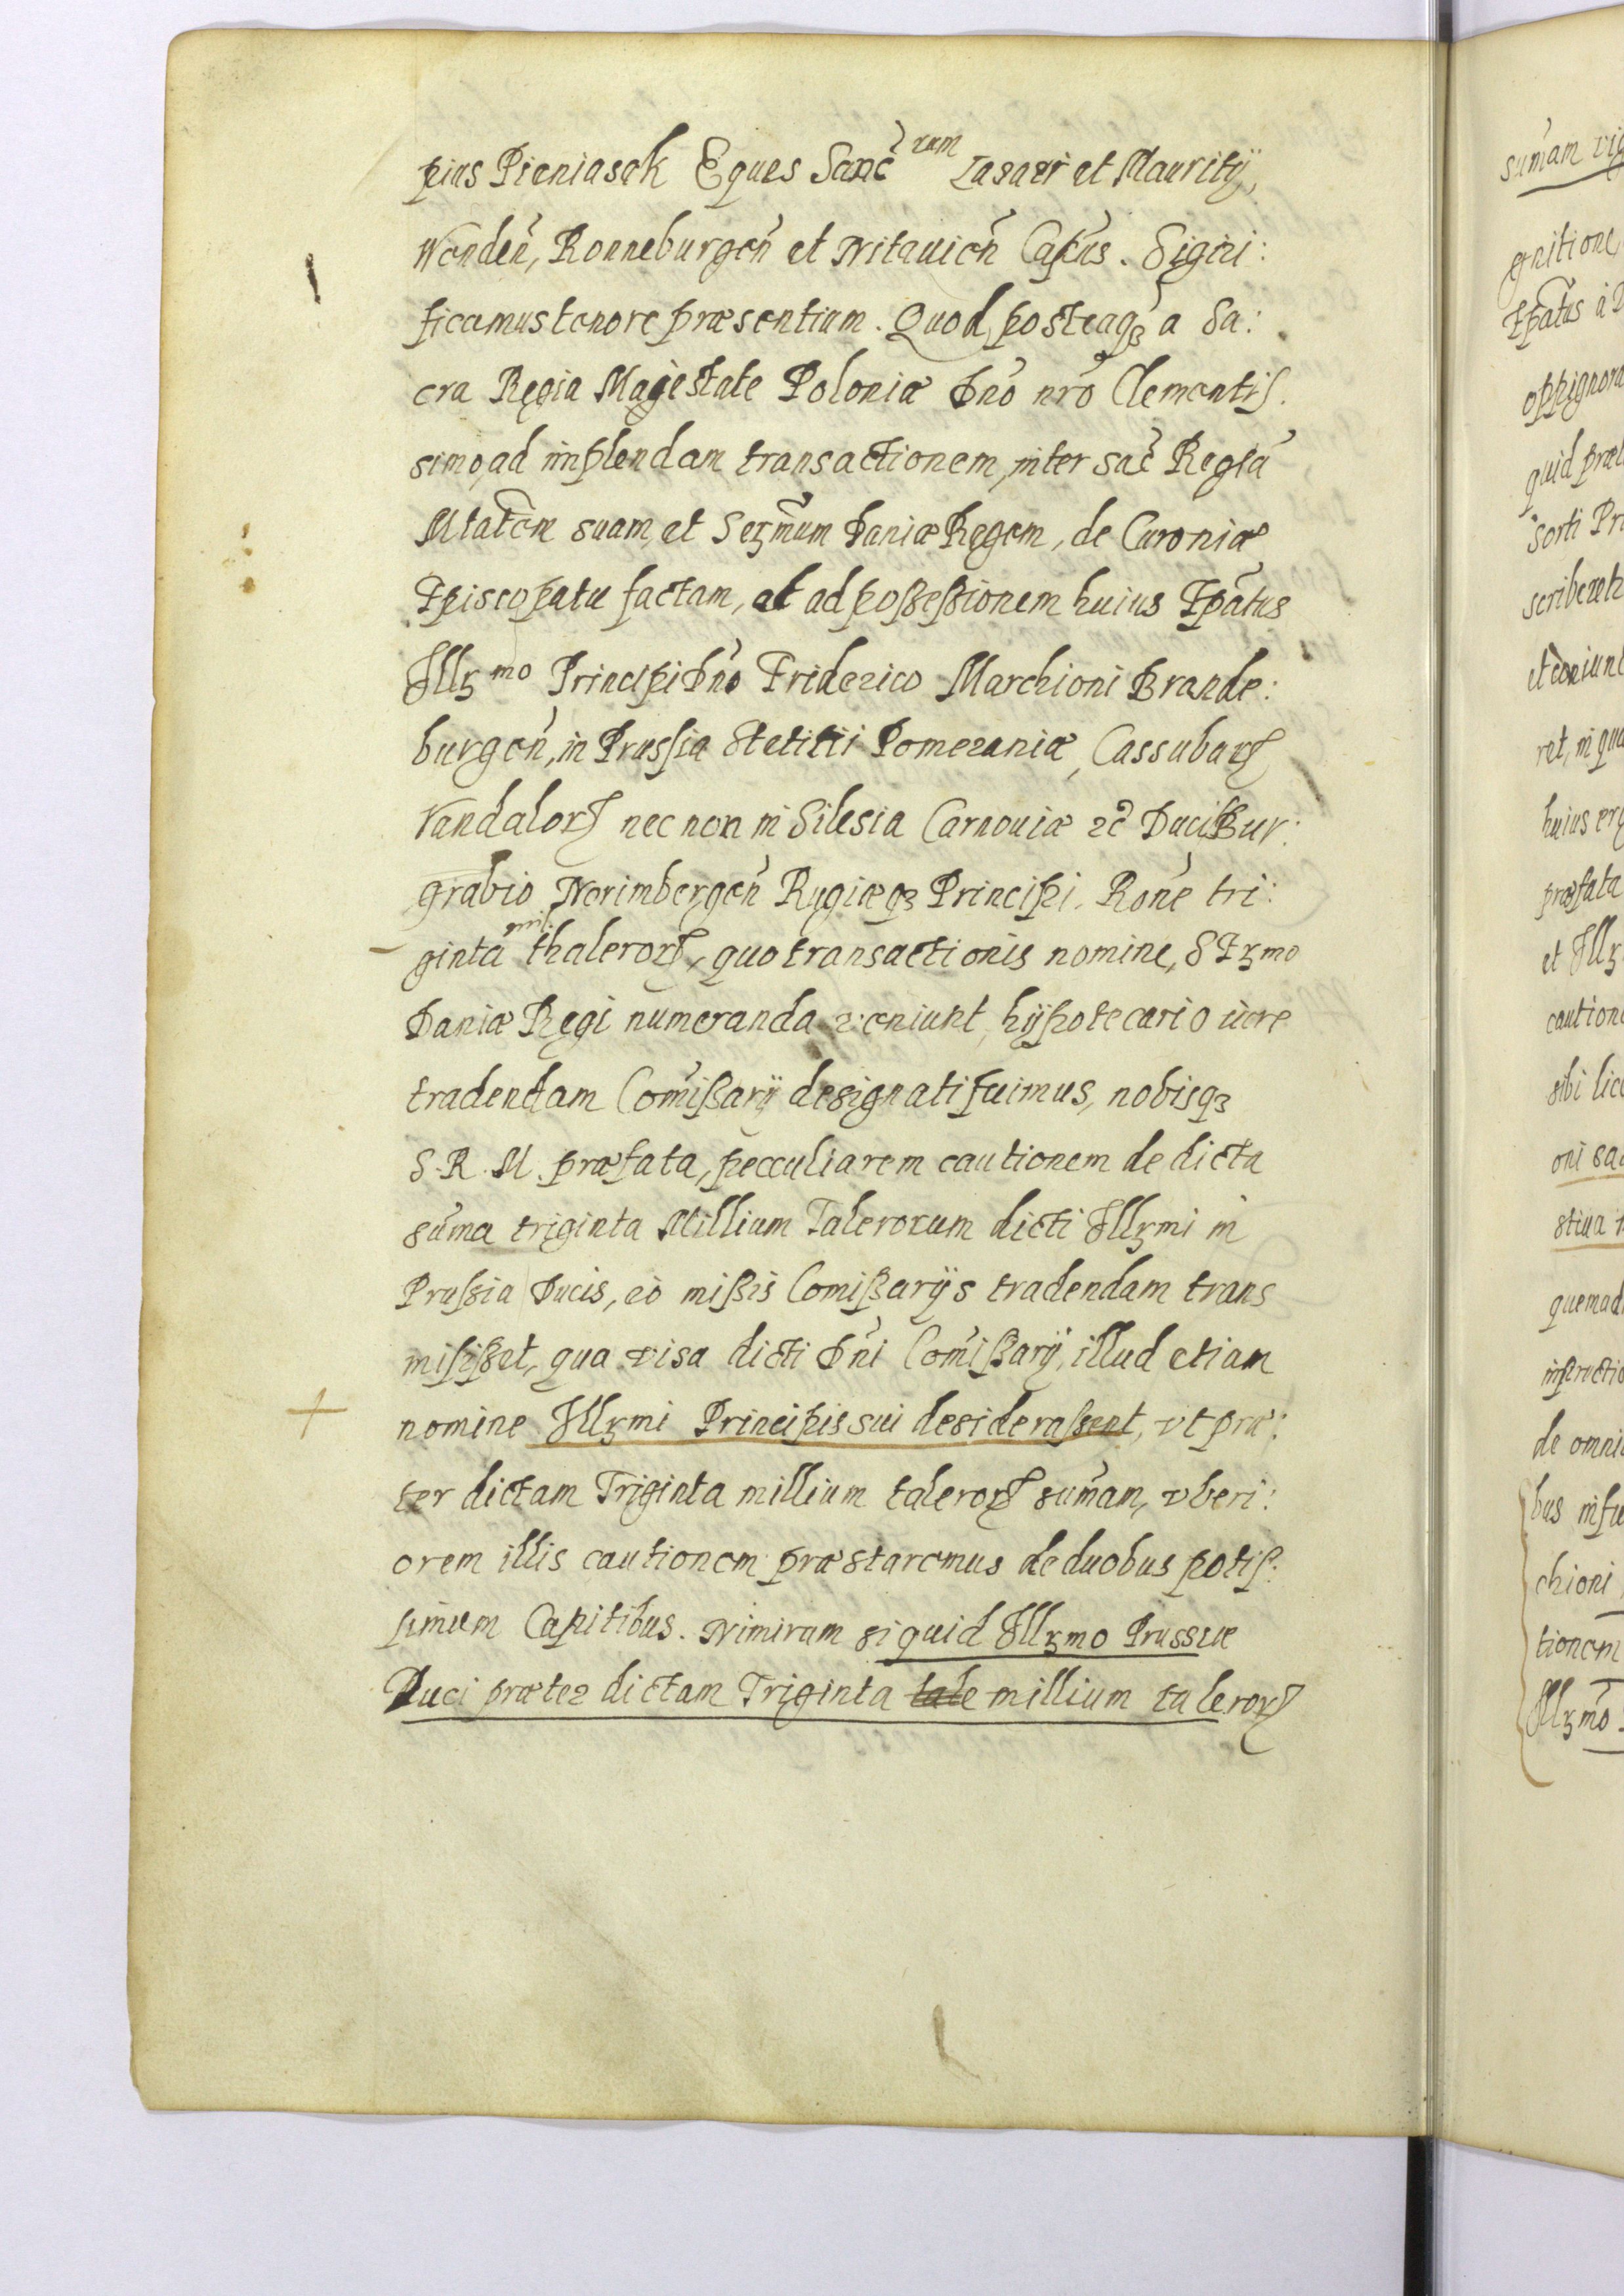 pius Pieniasek Eques Sanc̃rum Lasari et Mauritij,
Wendeñ, Ronneburgeñ et Nitauieñ Capñs. Signi:
ficamus tenore præsentium. Quod posteaqȝ a Sa:
cra Regia Magestate Poloniæ Dño nr̃o Clementis.
simo, ad implendam transactionem, inter sac̃ Regiã
Mtatem suam, et Serm̃um Daniæ Regem, de Curoniæ
Episcopatu factam, et ad poßeßionem huius Ep̃atus
Illȝmo Principi Dño Friderico Marchioni Brande:
burgeñ, in Prussia Stetitii Pomeraniæ, Cassubarꝝ
Vandalorꝝ nec non in Silesia Carnouiæ ꝛc Duci Bur:
grabio Norimbergeñ Rugiæqȝ Principi. Rõne tri:
ginta mil. thalerorꝝ, quo transactionis nomine, SErmo
Daniæ Regi numeranda veniunt, hijpotecario iure
tradendam Com̃ißarij designati fuimus, nobisqȝ
S. R. M. præfata, pecculiarem cautionem de dicta
sum̃a triginta Millium Talerorum dicti Illȝmi in
Prussia Ducis, eò mißis Comißarijs tradendam trans
misißet, qua visa dicti Dñi Com̃ißarij, illud etiam
nomine Illȝmi Principis sui desideraßent, vt præ:
ter dictam Triginta millium talerorꝝ sum̃am, vberi:
orem illis cautionem præstaremus de duobus potis:
simum Capitibus. Nimirum si quid Illȝmo Prussiæ
Duci præter dictam Triginta tale millium talerorꝝ
sum̃am
gnitione,
Ep̃atus à
oppignora
quid
sorti
et coniun
ret, in qua
huius
præfata
et Illȝ
caution
sibi
oni
stiua
quemad
de omni
bus
chioni
tionem
Illȝmo